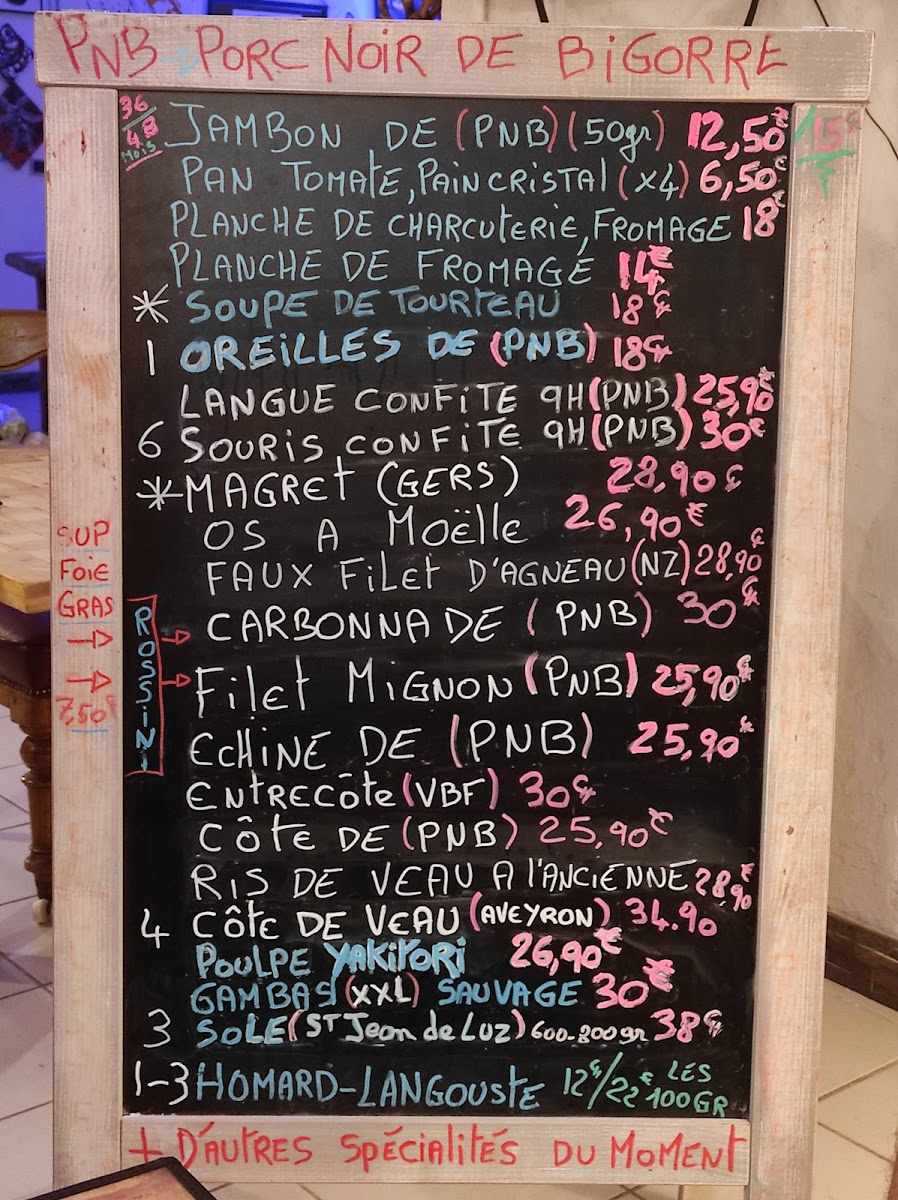 PNB → PORC NOIR DE BIGORRE
36/48 MOIS JAMBON DE (PNB) (50gr) 12,50€ 15€
PAN TOMATE, PAIN CRISTAL (x4) 6,50€
PLANCHE DE CHARCUTERIE, FROMAGE 18€
PLANCHE DE FROMAGE 14€
* SOUPE DE TOURTEAU 18€
1 OREILLES DE (PNB) 18€
LANGUE CONFITE 9H (PNB) 25,90€
6 SOURIS CONFITE 9H (PNB) 30€
* MAGRET (GERS) 28,90€
OS A MOËLLE 26,90€
FAUX FILET D'AGNEAU (NZ) 28,90€
SUP
FOIE
GRAS
→
→
7,50€
ROSSINI
→ CARBONNADE (PNB) 30€
→ FILET MIGNON (PNB) 25,90€
ECHINE DE (PNB) 25,90€
ENTRECÔTE (VBF) 30€
CÔTE DE (PNB) 25,90€
RIS DE VEAU A L'ANCIENNE 28,90€
4 CÔTE DE VEAU (AVEYRON) 34.90
POULPE YAKITORI 26,90€
GAMBAS (XXL) SAUVAGE 30€
3 SOLE (ST Jean de Luz) 600-800gr 38€
1-3 HOMARD-LANGOUSTE 12€/22€ LES 100GR
+ D'AUTRES SPÉCIALITÉS DU MOMENT